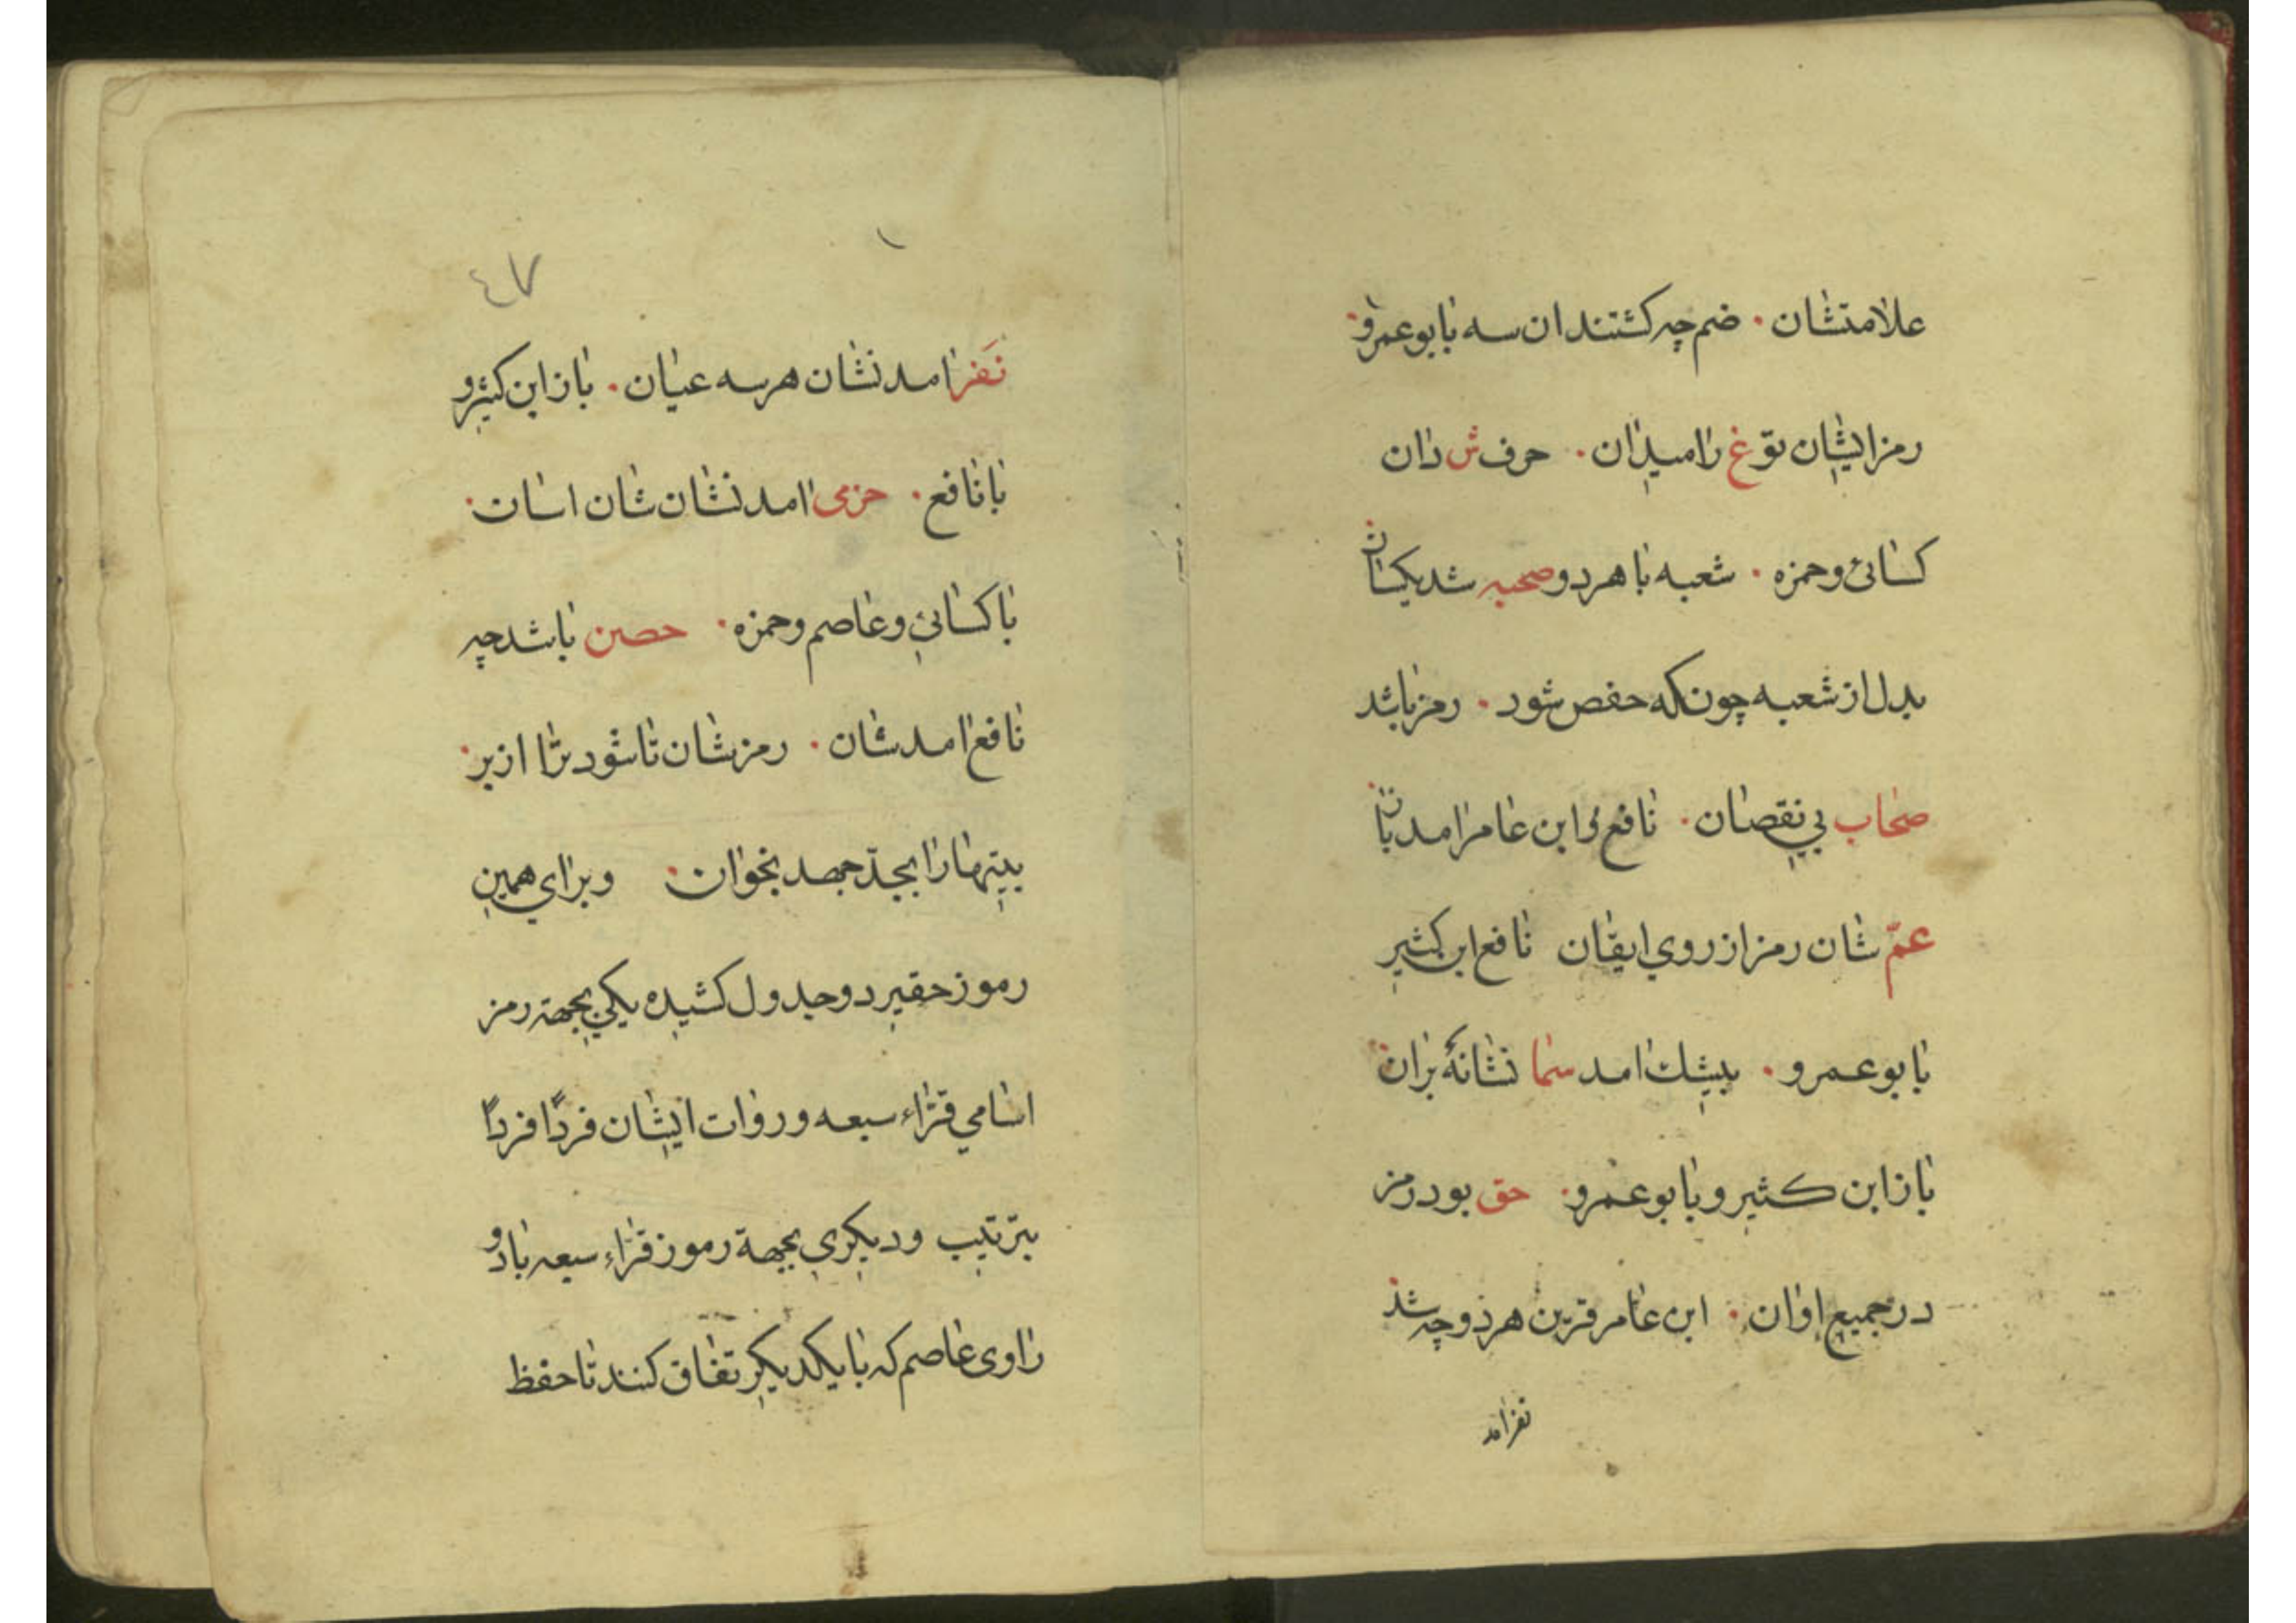 علامتشان . ضم چه کشتند ان سه بابوعمرو .
رمز ایشان توّ غ را میدان . حرف ش دان
کسائی وحمزه . شعبه با هردو صحبه شدیکسان
بدل از شعبه چونکه حفص شود . رمز باشد
صحاب بی نقصان . نافع و ابن عامر امد بان
عمّ شان رمز از روی ایقان نافع ابن کثیر
بابوعمرو . بیشك امد سما نشانهٔ بران
باز ابن کثیر و بابوعمرو . حق بود رمز
در جمیع اوان . ابن عامر قرین هردو چه شد
نفر امد
١
٤٧
نَفَر امد نشان هرسه عیان . باز ابن کثیر و
با نافع . حرمی امد نشان شان اسان .
با کسائی و عاصم وحمزه . حصن باشد چه
نافع امد شان . رمز شان تا شود ترا از بر .
بیتها را بجدّ جهد بخوان . و برای همین
رموز حقیر دو جدول کشیده یکی بجهة رمز
اسامی قرّاء سبعه و روات ایشان فردًا فردًا
بترتیب و دیکری بجهة رموز قرّاء سبعه با دو
راوی عاصم که با یکدیکر تفاق کنند تا حفظ